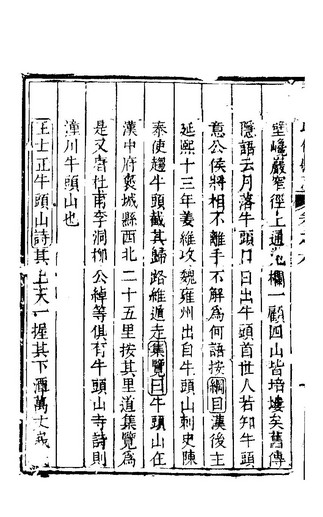 壁巉巖窄徑上通危欄一顧四山皆培塿矣舊傳
隱語云月落牛頭口日出牛頭首世人若知牛頭
意公侯將相不離手不解爲何語按綱目漢後主
延熙十三年姜維攻魏雍州出自牛頭山刺史陳
泰使趨牛頭截其歸路維遁走集覽曰牛頭山在
漢中府褒城縣西北二十五里按其里道集覽爲
是又考杜甫李洞柳公綽等俱有牛頭山寺詩則
潼川牛頭山也
王士正牛頭山詩其上天一握其下潭萬丈